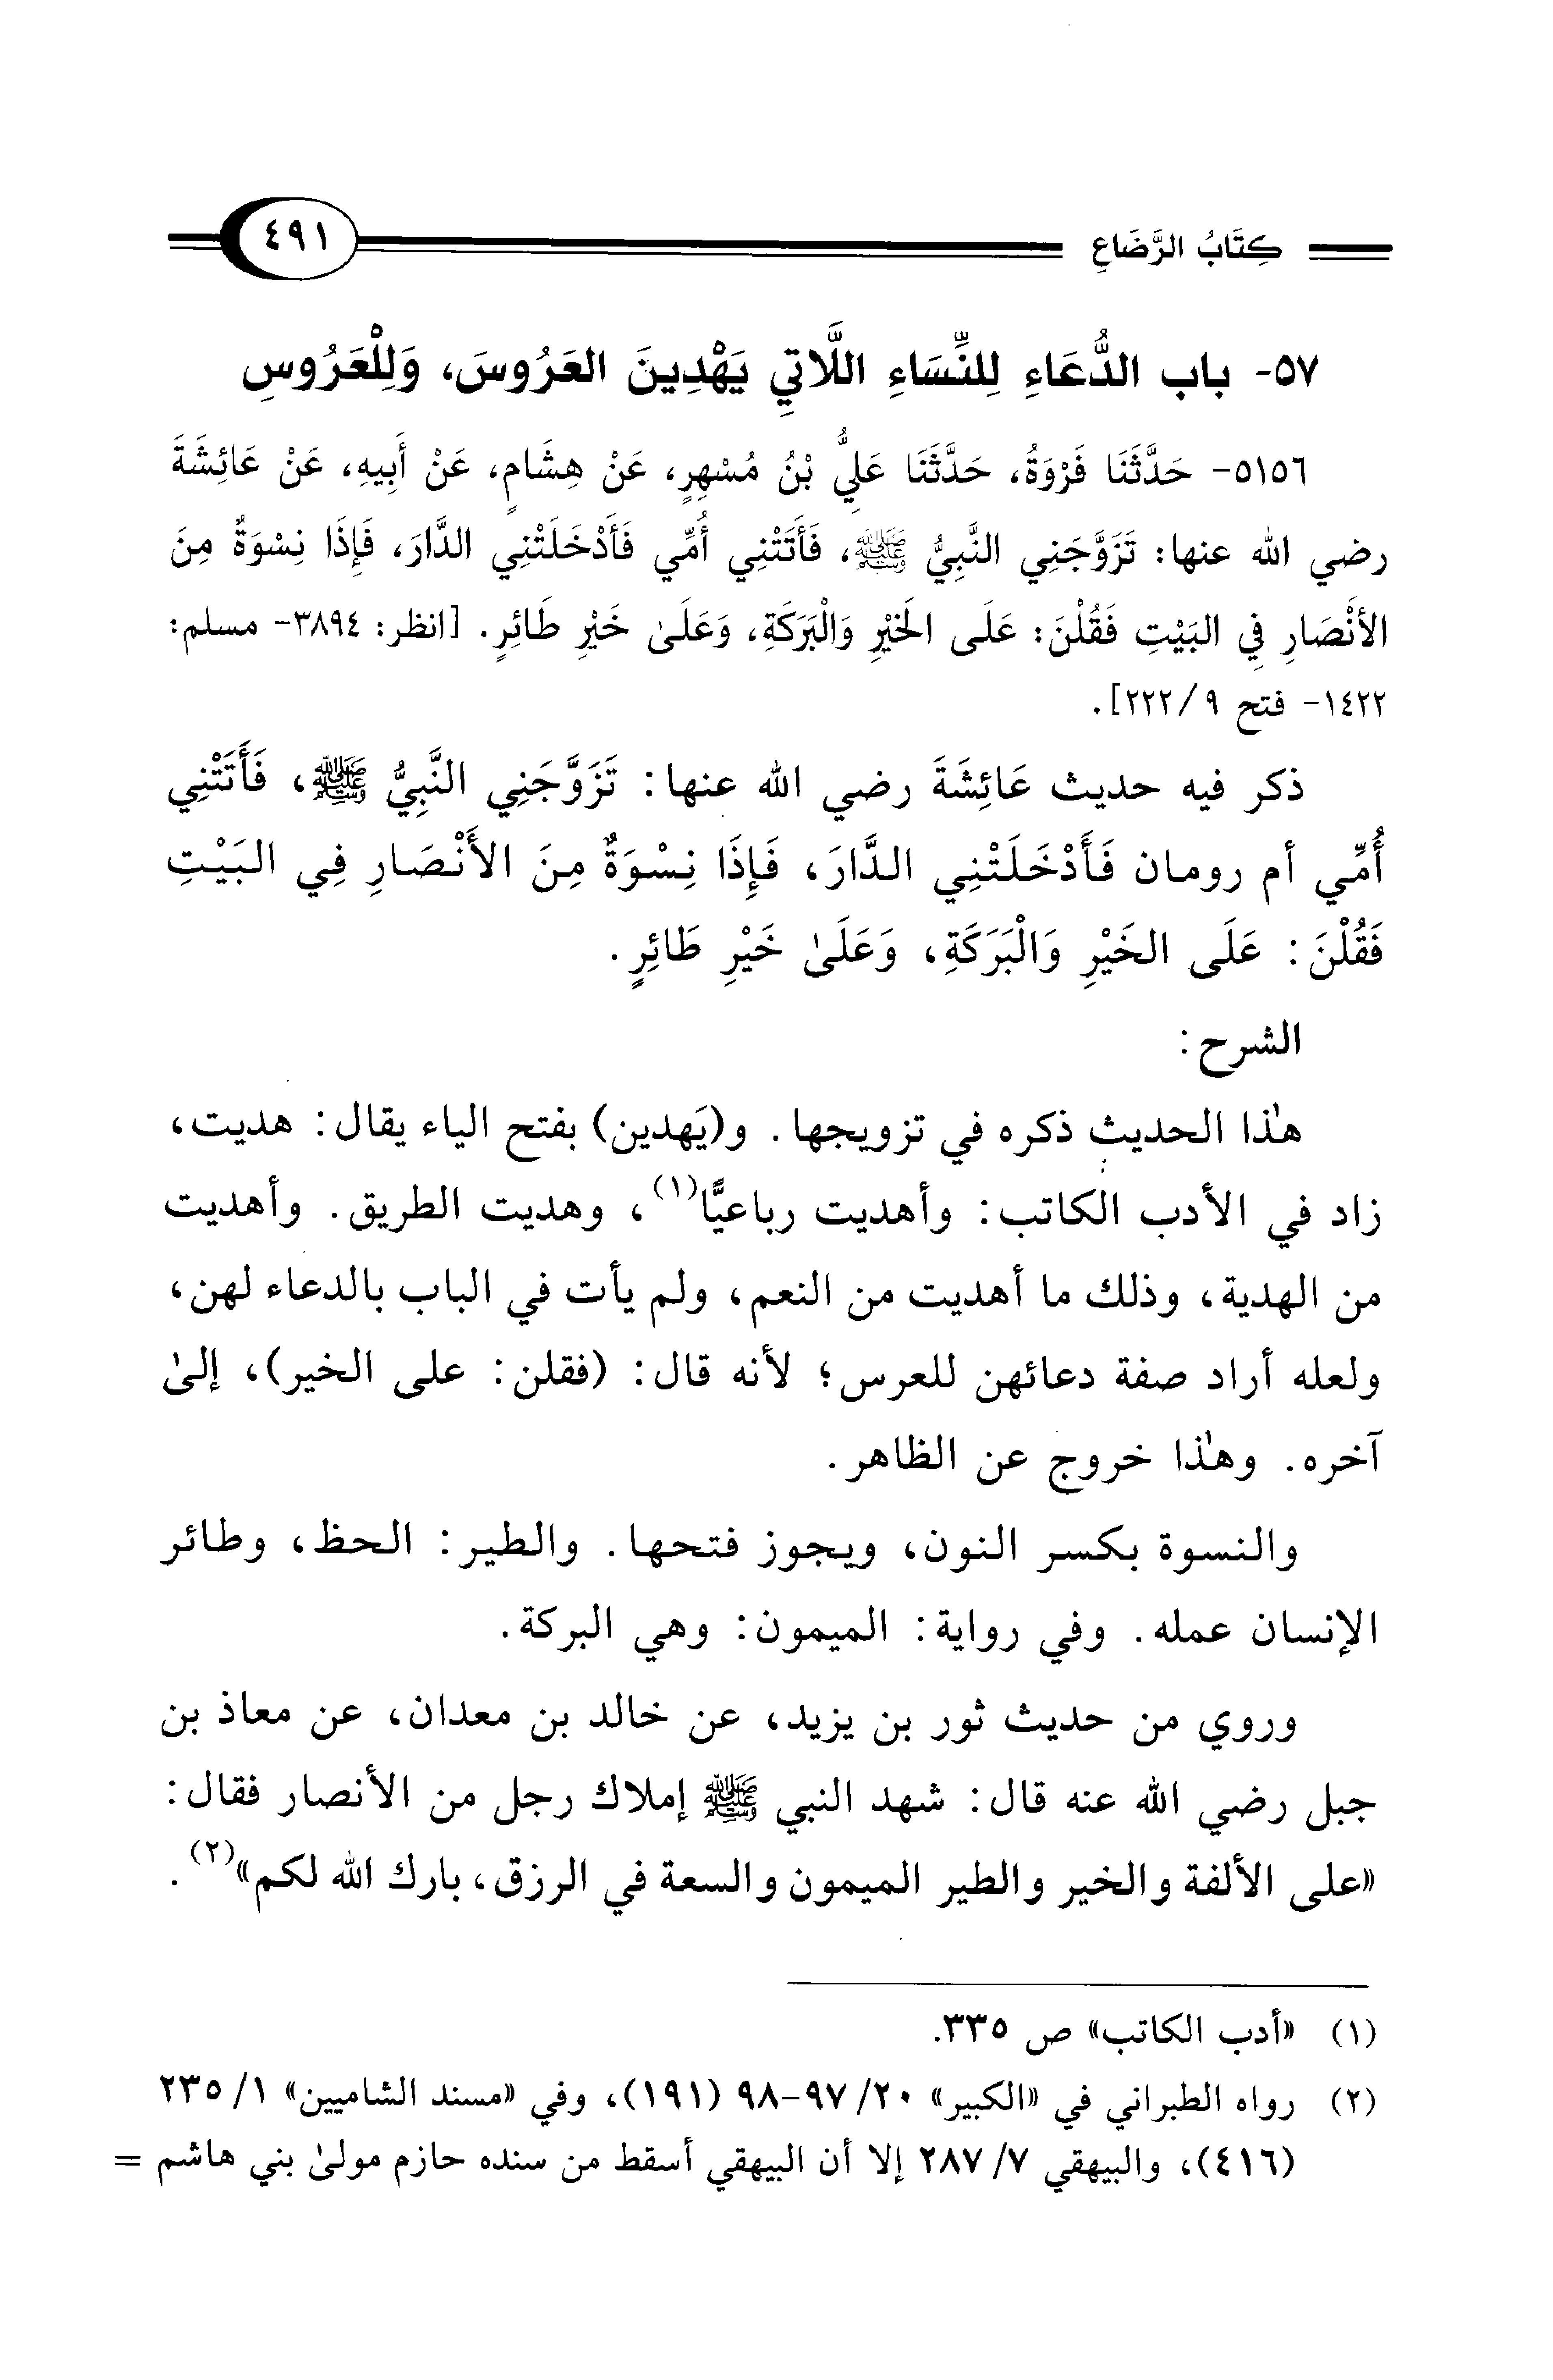 كِتَابُ الرَّضَاعِ
٤٩١
٥٧- باب الدُّعَاءِ لِلنِّسَاءِ اللَّاتِي يَهْدِينَ العَرُوسَ، وَلِلْعَرُوسِ
٥١٥٦- حَدَّثَنَا فَرْوَةُ، حَدَّثَنَا عَلِيُّ بْنُ مُسْهِرٍ، عَنْ هِشَامٍ، عَنْ أَبِيهِ، عَنْ عَائِشَةَ
رضي الله عنها: تَزَوَّجَنِي النَّبِيُّ ﷺ، فَأَتَتْنِي أُمِّي فَأَدْخَلَتْنِي الدَّارَ، فَإِذَا نِسْوَةٌ مِنَ
الأَنْصَارِ فِي البَيْتِ فَقُلْنَ: عَلَى الخَيْرِ وَالْبَرَكَةِ، وَعَلَىٰ خَيْرِ طَائِرٍ. [انظر: ٣٨٩٤- مسلم:
١٤٢٢- فتح ٩/٢٢٢].
ذكر فيه حديث عَائِشَةَ رضي الله عنها: تَزَوَّجَنِي النَّبِيُّ ﷺ، فَأَتَتْنِي
أُمِّي أم رومان فَأَدْخَلَتْنِي الدَّارَ، فَإِذَا نِسْوَةٌ مِنَ الأَنْصَارِ فِي البَيْتِ
فَقُلْنَ: عَلَى الخَيْرِ وَالْبَرَكَةِ، وَعَلَىٰ خَيْرِ طَائِرٍ.
الشرح:
هٰذا الحديث ذكره في تزويجها. و(يَهدين) بفتح الياء يقال: هديت،
زاد في الأدب الكاتب: وأهديت رباعيًّا(١)، وهديت الطريق. وأهديت
من الهدية، وذلك ما أهديت من النعم، ولم يأت في الباب بالدعاء لهن،
ولعله أراد صفة دعائهن للعرس؛ لأنه قال: (فقلن: على الخير)، إلىٰ
آخره. وهٰذا خروج عن الظاهر.
والنسوة بكسر النون، ويجوز فتحها. والطير: الحظ، وطائر
الإنسان عمله. وفي رواية: الميمون: وهي البركة.
وروي من حديث ثور بن يزيد، عن خالد بن معدان، عن معاذ بن
جبل رضي الله عنه قال: شهد النبي ﷺ إملاك رجل من الأنصار فقال:
«على الألفة والخير والطير الميمون والسعة في الرزق، بارك الله لكم»(٢).
(١) «أدب الكاتب» ص ٣٣٥.
(٢) رواه الطبراني في «الكبير» ٢٠/ ٩٧-٩٨ (١٩١)، وفي «مسند الشاميين» ١/ ٢٣٥
(٤١٦)، والبيهقي ٧/ ٢٨٧ إلا أن البيهقي أسقط من سنده حازم مولىٰ بني هاشم =